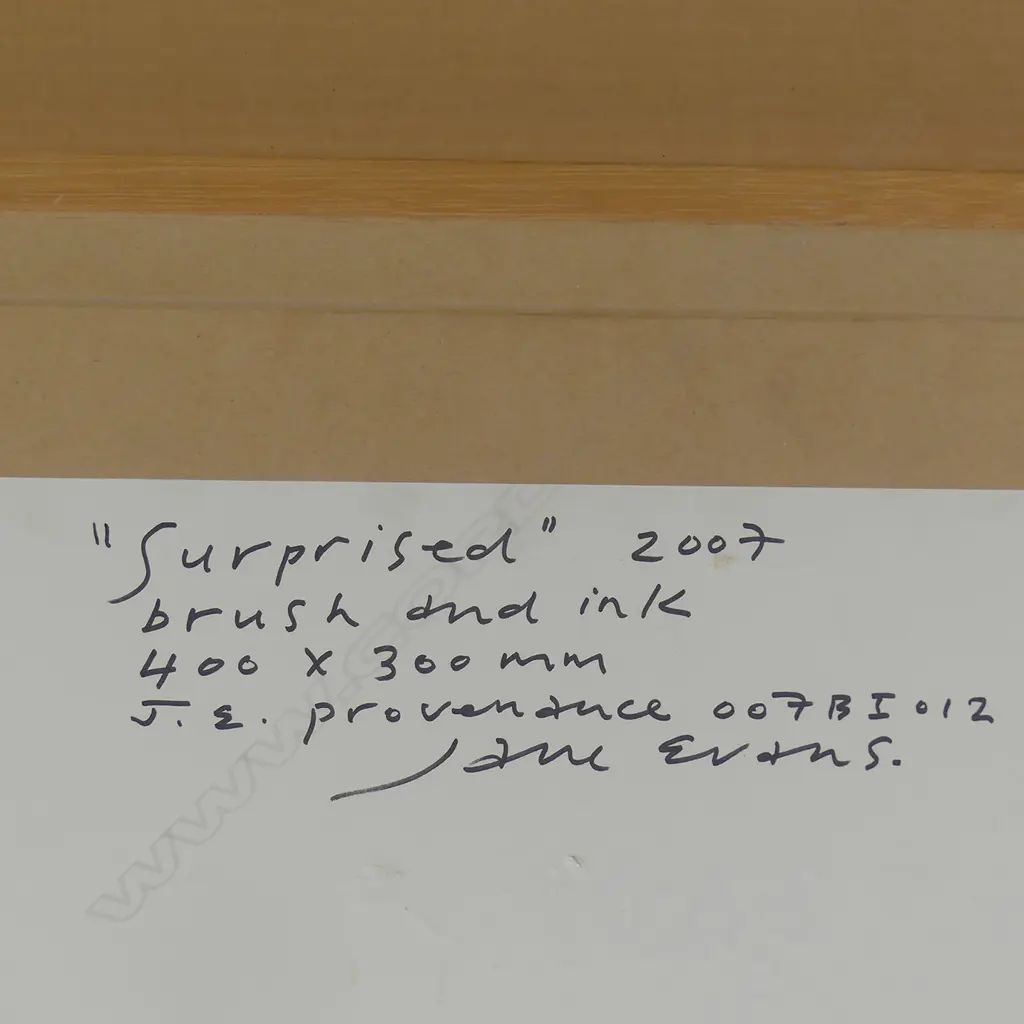 "Surprised" 2007
brush and ink
400 x 300 mm
J.E. provenance 007BI012
Jane Evans.